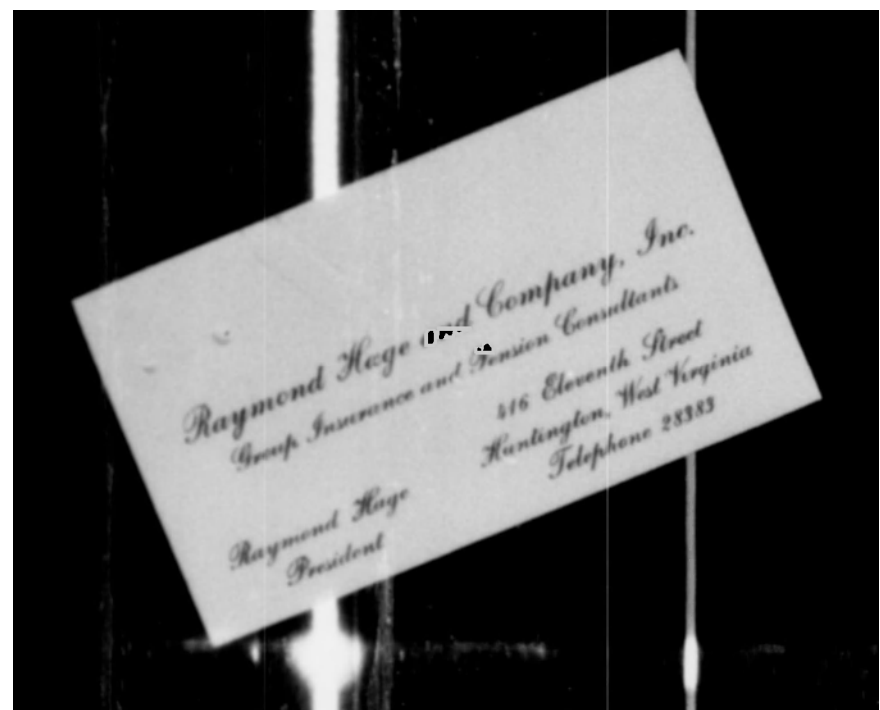 Raymond Hage and Company, Inc.
Group Insurance and Pension Consultants
416 Eleventh Street
Huntington, West Virginia
Telephone 28383
Raymond Hage
President